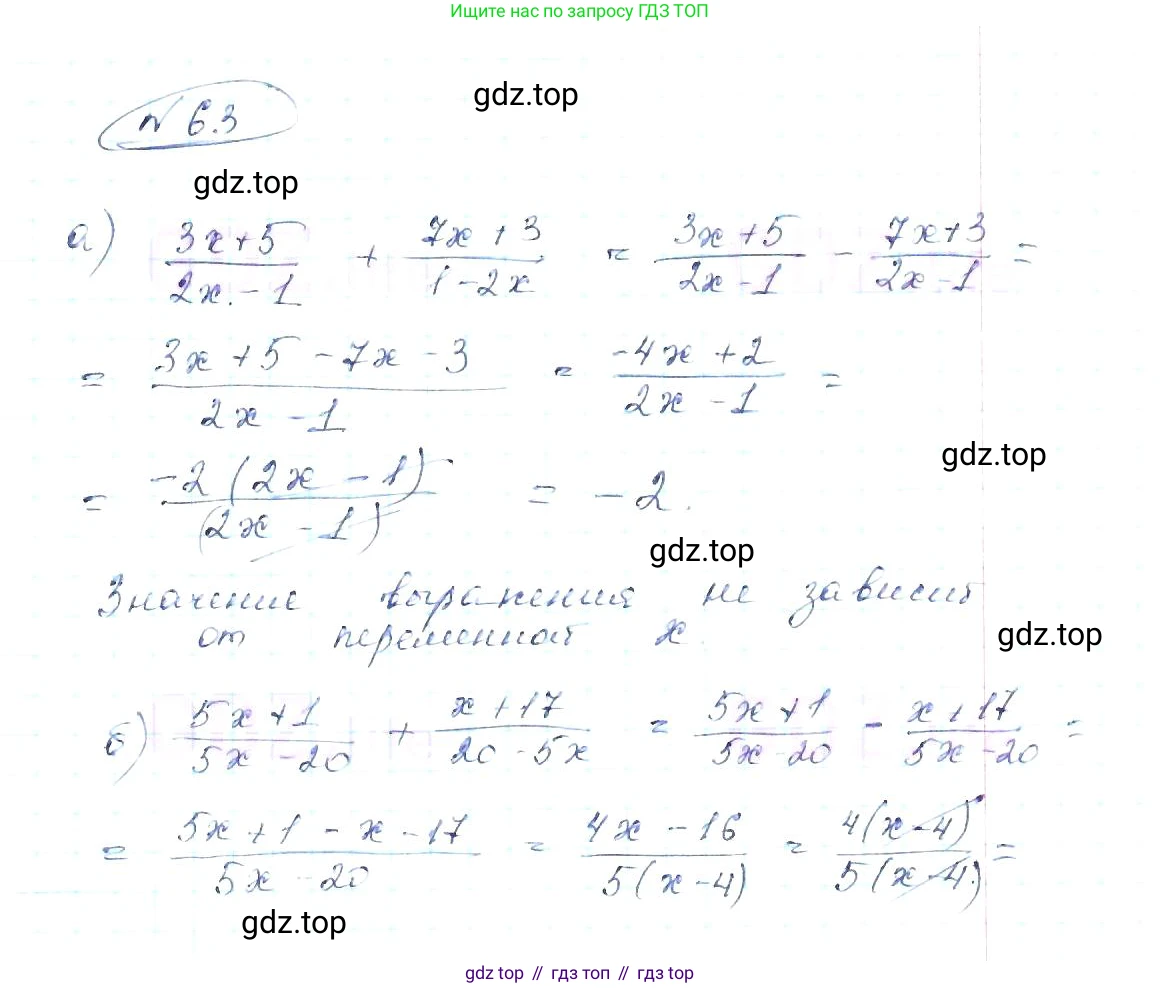 Ищите нас по запросу ГДЗ ТОП
gdz.top
№ 6.3
gdz.top
а) (3x+5)/(2x-1) + (7x+3)/(1-2x) = (3x+5)/(2x-1) - (7x+3)/(2x-1) =
= (3x+5-7x-3)/(2x-1) = (-4x+2)/(2x-1) =
gdz.top
= (-2(2x-1))/((2x-1)) = -2.
gdz.top
Значение выражения не зависит
от переменной x.
gdz.top
б) (5x+1)/(5x-20) + (x+17)/(20-5x) = (5x+1)/(5x-20) - (x+17)/(5x-20) =
= (5x+1-x-17)/(5x-20) = (4x-16)/(5(x-4)) = (4(x-4))/(5(x-4)) =
gdz.top
gdz top // гдз топ // гдз top